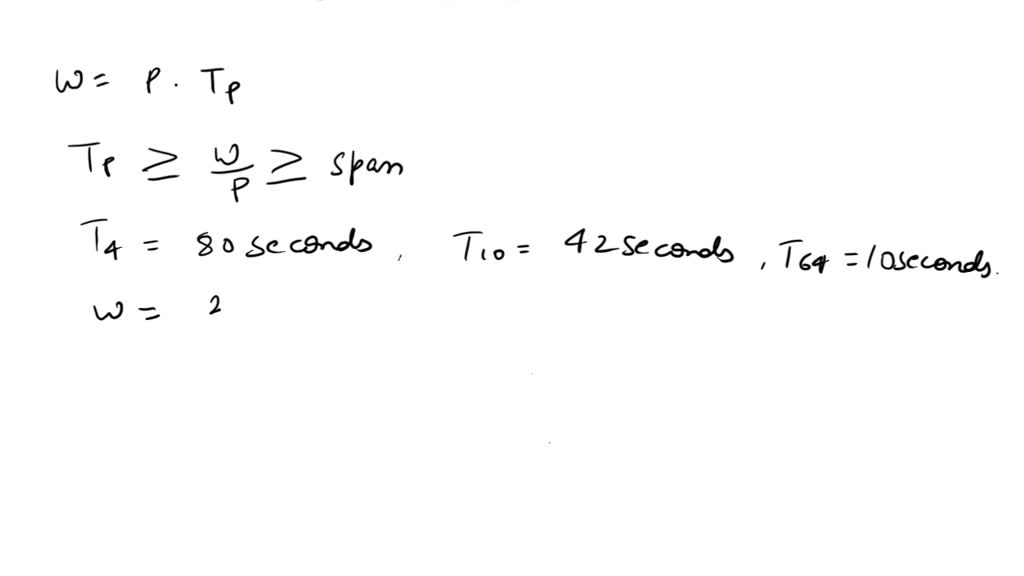 W = P . Tp
Tp ≥ W/P ≥ span
T4 = 80 seconds, T10 = 42 seconds, T64 = 10 seconds.
W = 2